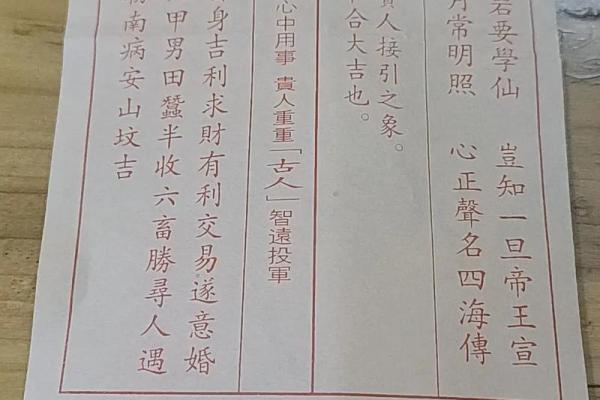 要學仙 豈知一旦帝王宣
常明照 心正聲名四海傳
人接引之象。
合大吉也。
心中用事 貴人重重「古人」智遠投軍
身吉利求財有利交易遂意婚
甲男田蠶半收六畜勝尋人遇
南病安山墳吉